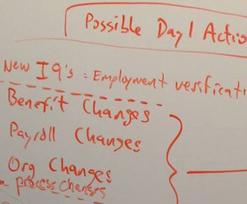 Possible Day 1 Actio
New I9's = Employment verificati
Benefit Changes
Payroll Changes
Org Changes
- process changes